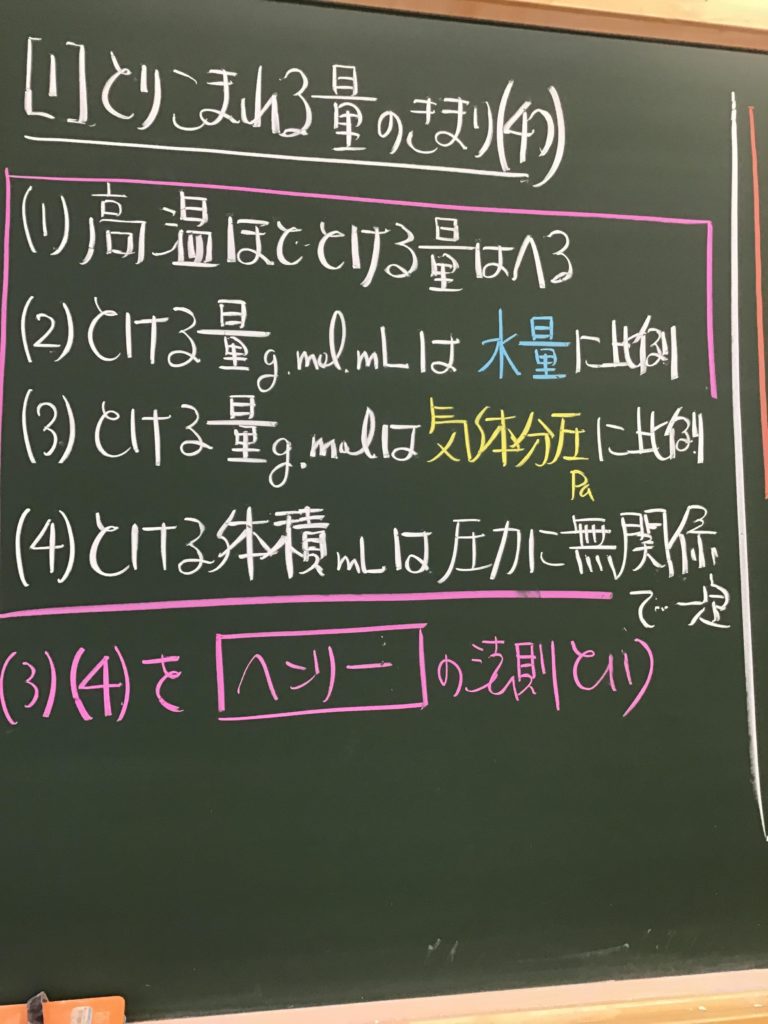 [1]とりこまれる量のきまり(4つ)
(1)高温ほどとける量はへる
(2)とける量g.mol.mLは水量に比例
(3)とける量g.molは気体分圧に比例
Pa
(4)とける体積mLは圧力に無関係
で一定
(3)(4)をヘンリーの法則という